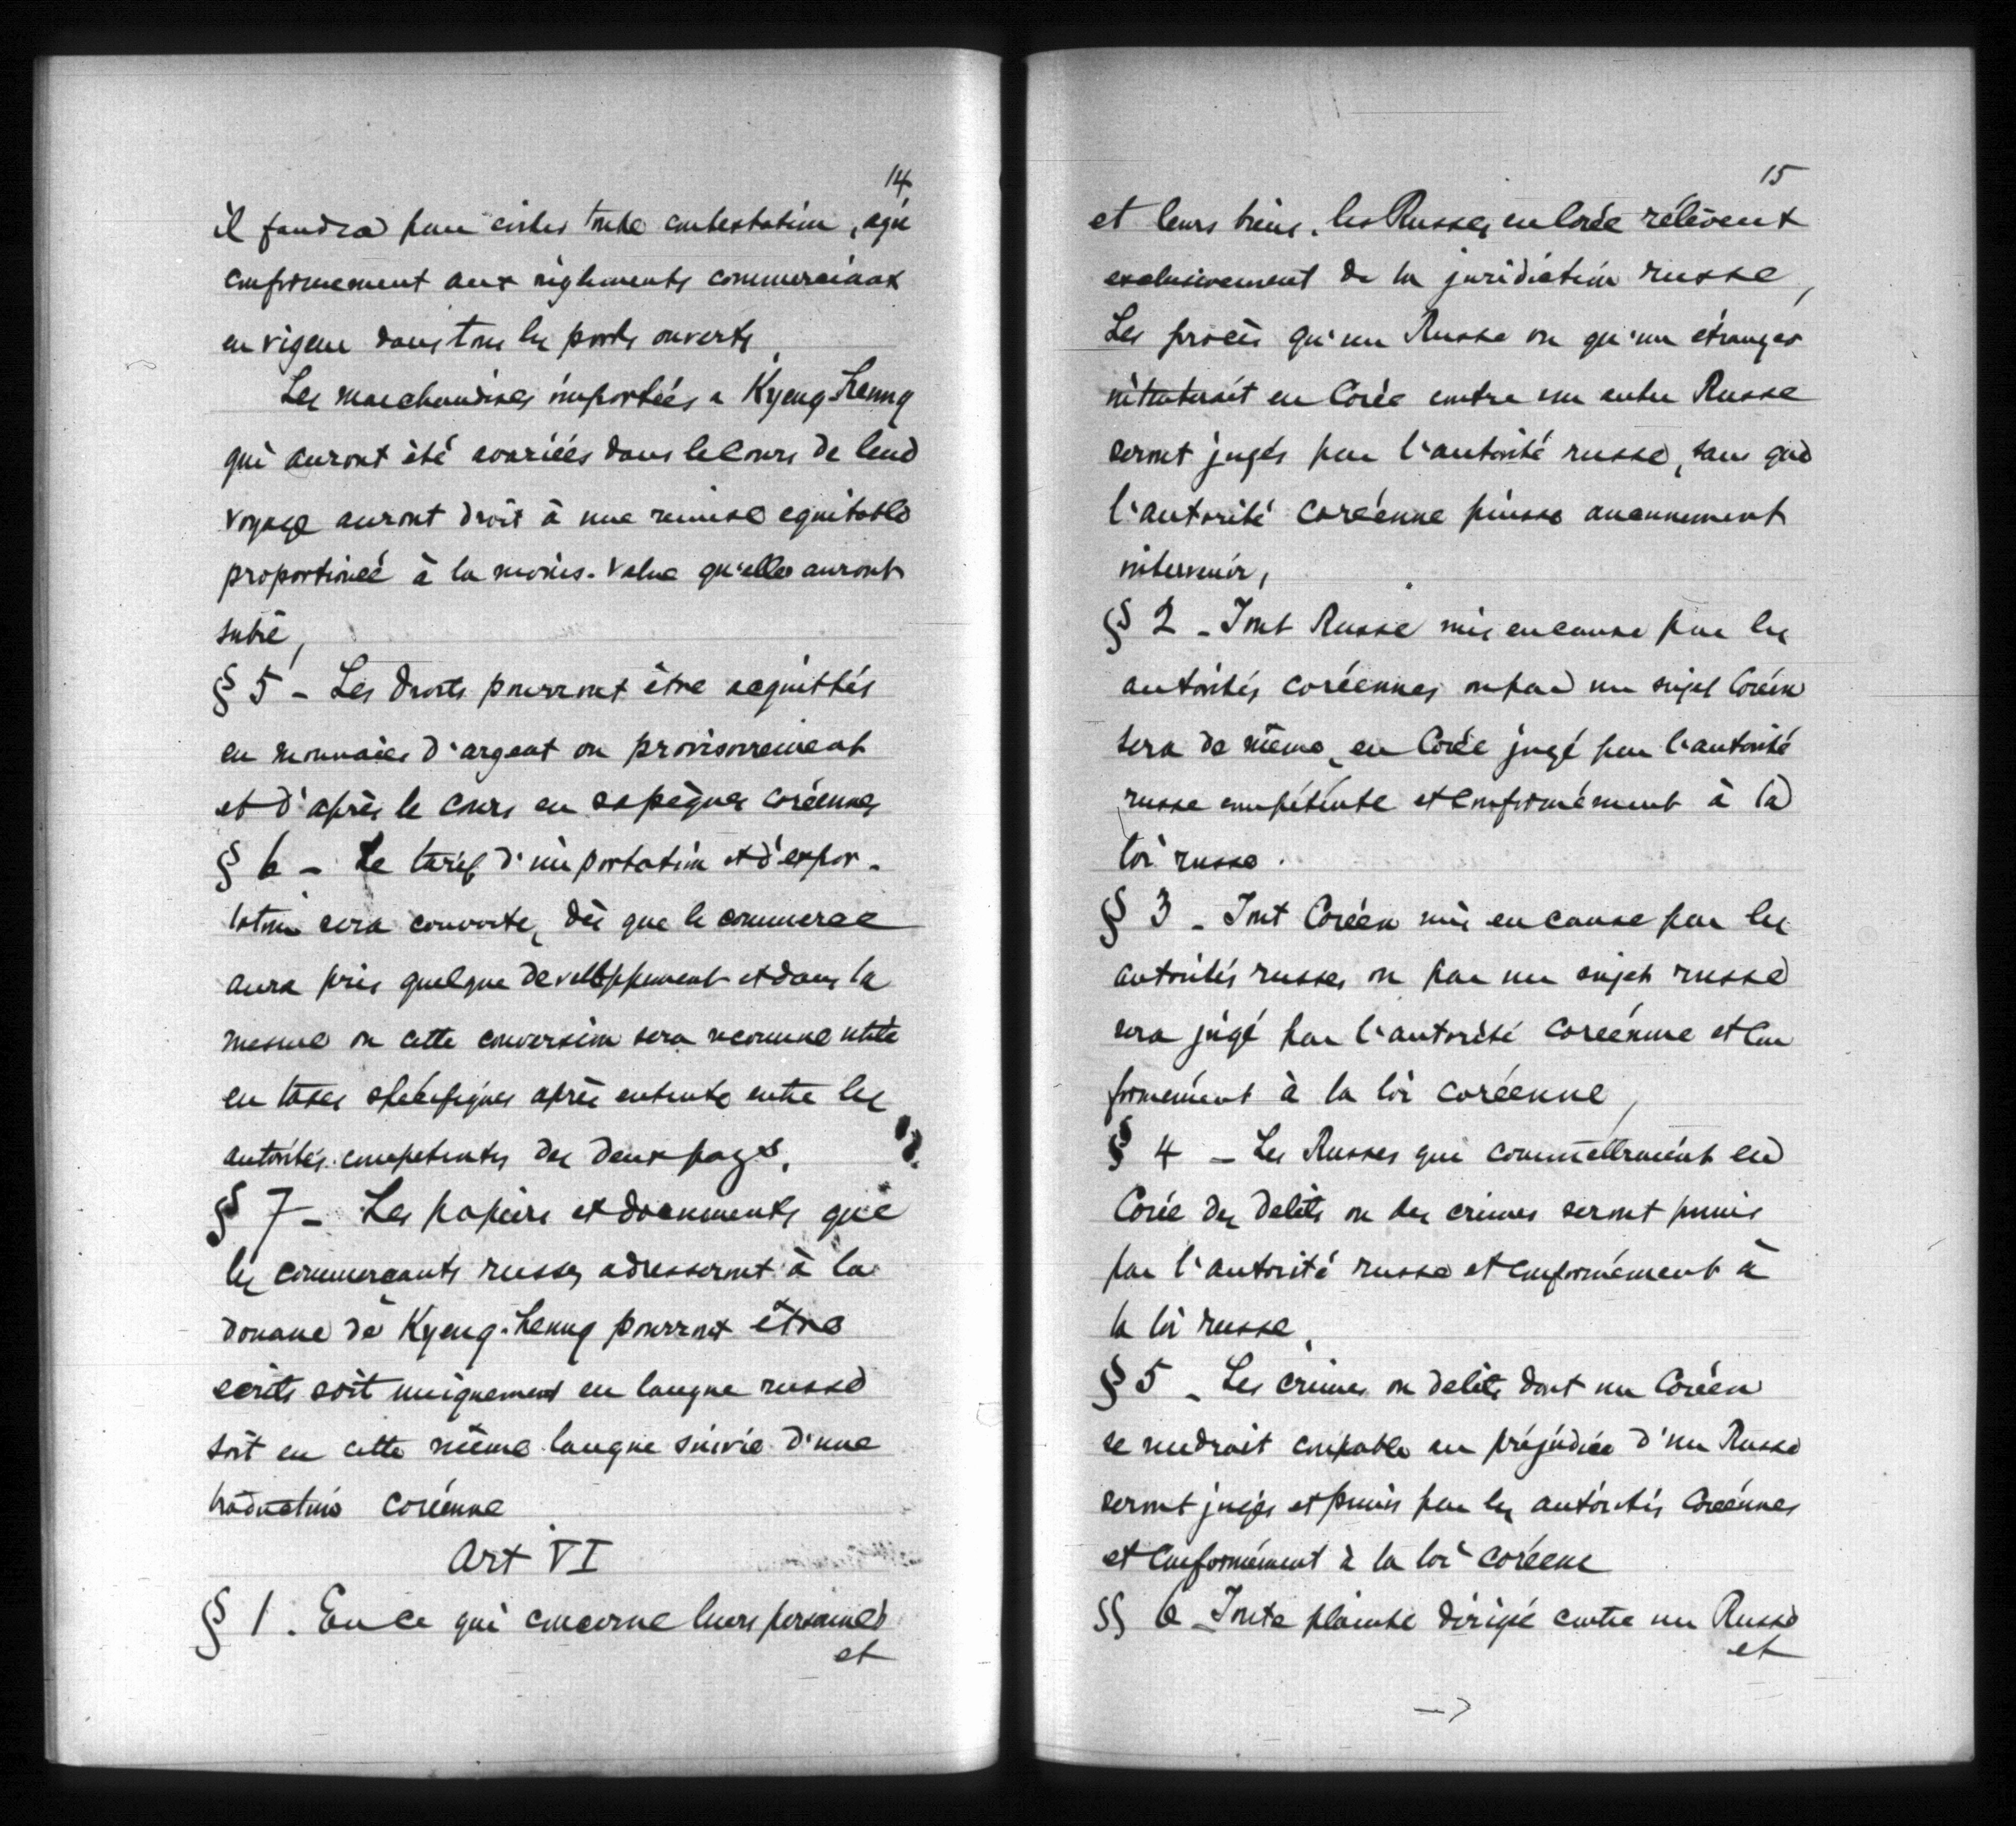 14
il faudra pour éviter toute contestation, agir
conformement aux réglements commerciaux
en vigeur dans tous les ports ouverts
Les marchandises importées a Kyeng-Heung
qui auront été avariées dans le cours de leur
voyage auront droit à une remise equitable
proportionéé à la moins-value qu'elles auront
subie,
§ 5 - Les droits pourront être acquittés
en monnaies d'argent ou provisoirement
et d'après le cours en sapèques coréennes
§ 6 - Le tarif d'importation et d'expor-
tation sera converte, dès que le commerce
aura pris quelque developpement et dans la
mesure ou cette conversion sera reconnue utile
en taxes spécifiques après entente entre les
autorités competentes des deux pays.
§ 7 - Les papiers et documents que
les commerçants russes adresseront à la
douane de Kyeng-Heung pourront être
ecrits soit uniquement en langue russe
soit en cette même langue suivie d'une
traduction coréenne
Art VI
§ 1. En ce qui concerne leurs personnes
et
15
et leurs biens, les Russes en Corée rélèvent
exclusivement de la juridiction russe,
Les procès qu'un Russe ou qu'un étranger
intenterait en Corée contre un autre Russe
seront jugés par l'autorité russe, sans que
l'autorité coréenne puisse aucunement
intervenir,
§ 2 - Tout Russe mis en cause par les
autorités coréennes ou par un sujet Coréen
sera de même, en Corée jugé par l'autorité
russe compétente et conformément à la
loi russe.
§ 3 - Tout Coréen mis en cause par les
autorités russes ou par un sujet russe
sera jugé par l'autorité coréenne et con
formément à la loi coréenne,
§ 4 - Les Russes qui commettraient en
Corée des delits ou des crimes seront punis
par l'autorité russe et conformément à
la loi russe,
§ 5 - Les crimes ou delits dont un Coréen
se rendrait coupable au préjudice d'un Russe
seront jugés et punis par les autorités Coréennes
et conformément à la loi coréene
§§ 6 - Toute plainte dirigé contre un Russe
et